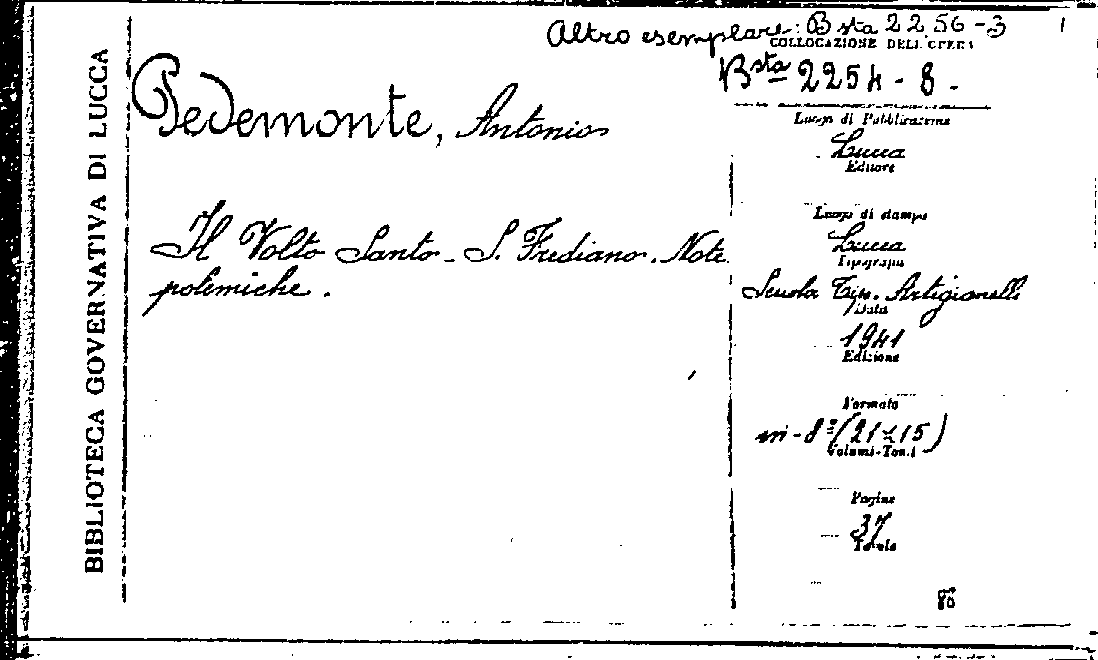 Altro esemplare: Bsta 2256-3
COLLOCAZIONE DELL'OPERA
Bsta 2254-8.
BIBLIOTECA GOVERNATIVA DI LUCCA
Pedemonte, Antonio
Il Volto Santo - S. Frediano. Note
polemiche.
Luogo di Pubblicazione
Lucca
Editore
Luogo di stampa
Lucca
Tipografia
Scuola Tip. Artigianelli
Data
1941
Edizione
Formato
in-8° (21x15)
Volumi-Tomi
Pagine
37
Tavole